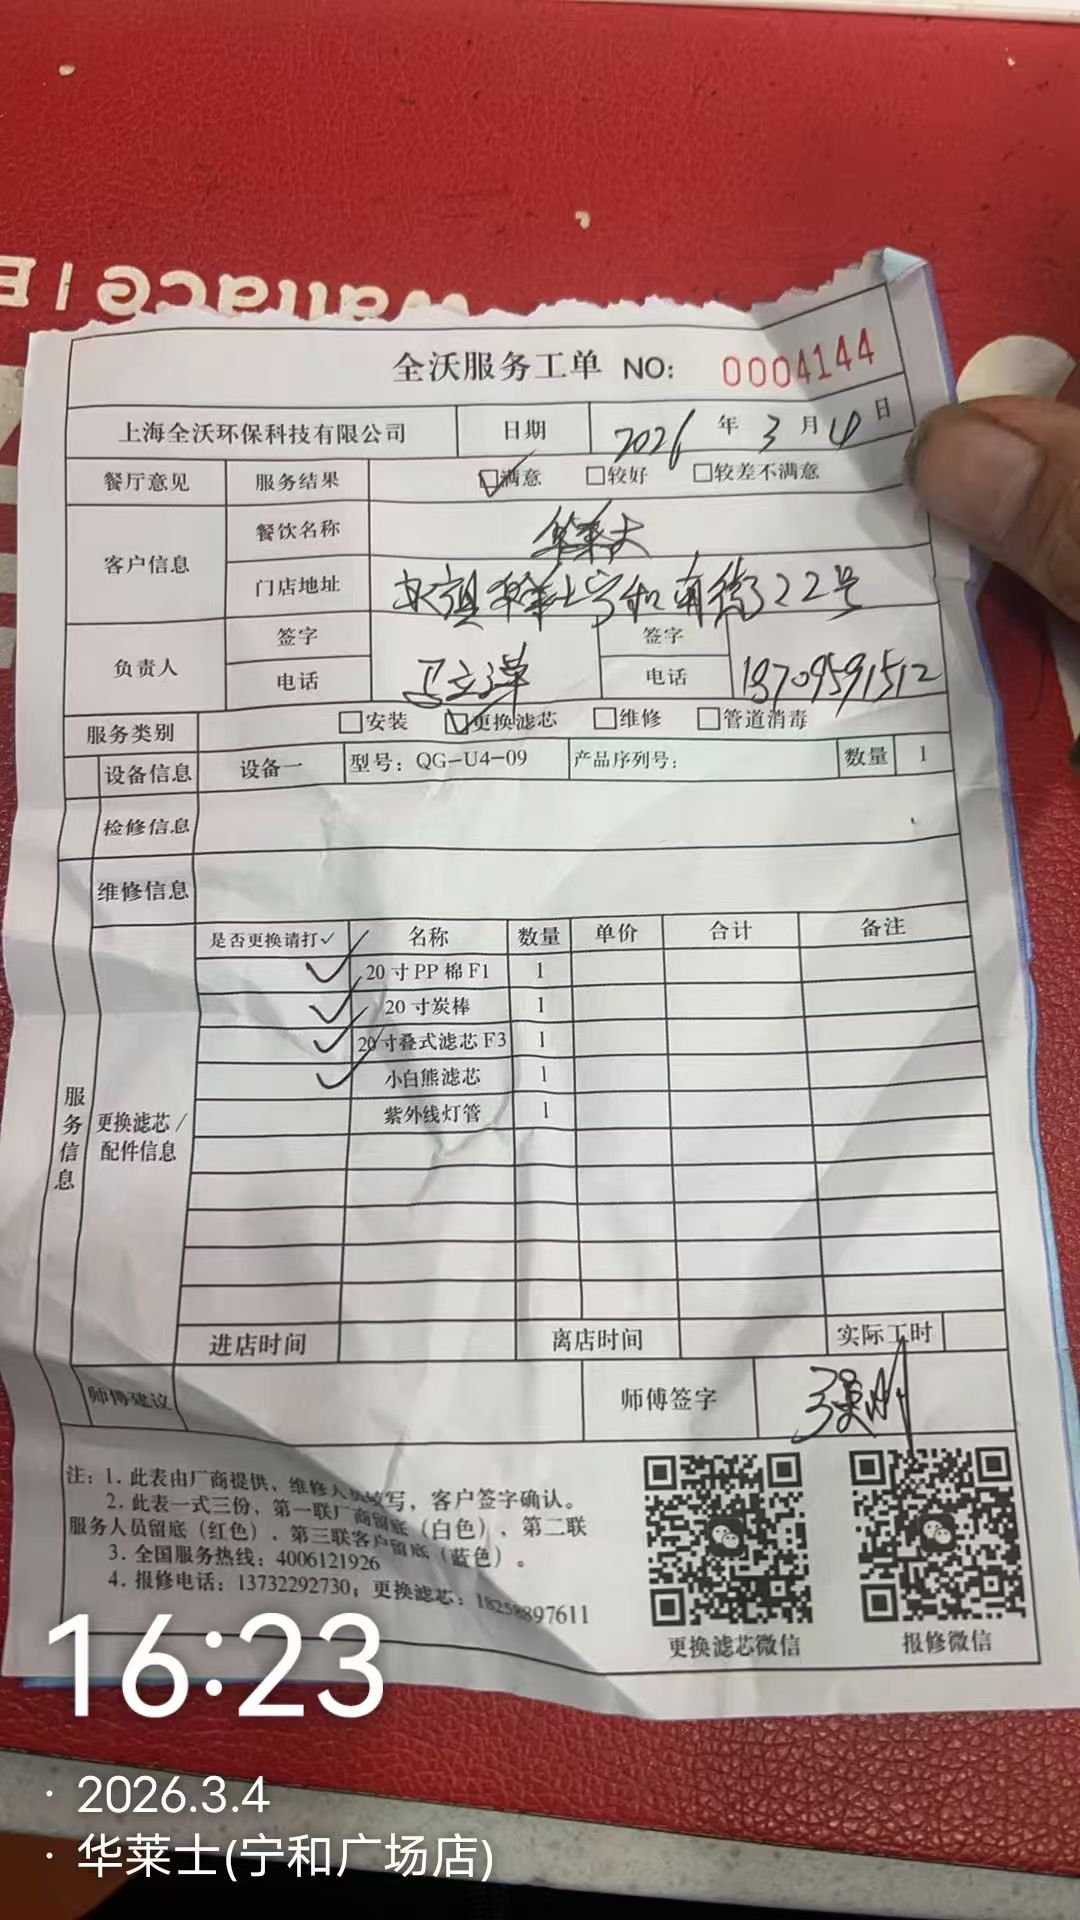 Wallace | E
全沃服务工单 NO: 0004144
上海全沃环保科技有限公司 日期 2026 年 3 月 4 日
餐厅意见 服务结果 ☑满意 □较好 □较差不满意
客户信息 餐饮名称 华莱士
门店地址 华莱士宁和南街22号
负责人 签字 签字
电话 电话 18709591512
服务类别 □安装 ☑更换滤芯 □维修 □管道消毒
设备信息 设备一 型号：QG-U4-09 产品序列号： 数量 1
检修信息
维修信息
服务信息
更换滤芯/
配件信息
是否更换请打✓ 名称 数量 单价 合计 备注
✓ 20寸PP棉F1 1
✓ 20寸炭棒 1
✓ 20寸叠式滤芯F3 1
✓ 小白熊滤芯 1
紫外线灯管 1
进店时间 离店时间 实际工时
师傅建议 师傅签字
注：1. 此表由厂商提供，维修人员填写，客户签字确认。
2. 此表一式三份，第一联厂商留底（白色），第二联
服务人员留底（红色），第三联客户留底（蓝色）。
3. 全国服务热线：4006121926
4. 报修电话：13732292730；更换滤芯：
更换滤芯微信 报修微信
16:23
· 2026.3.4
· 华莱士(宁和广场店)